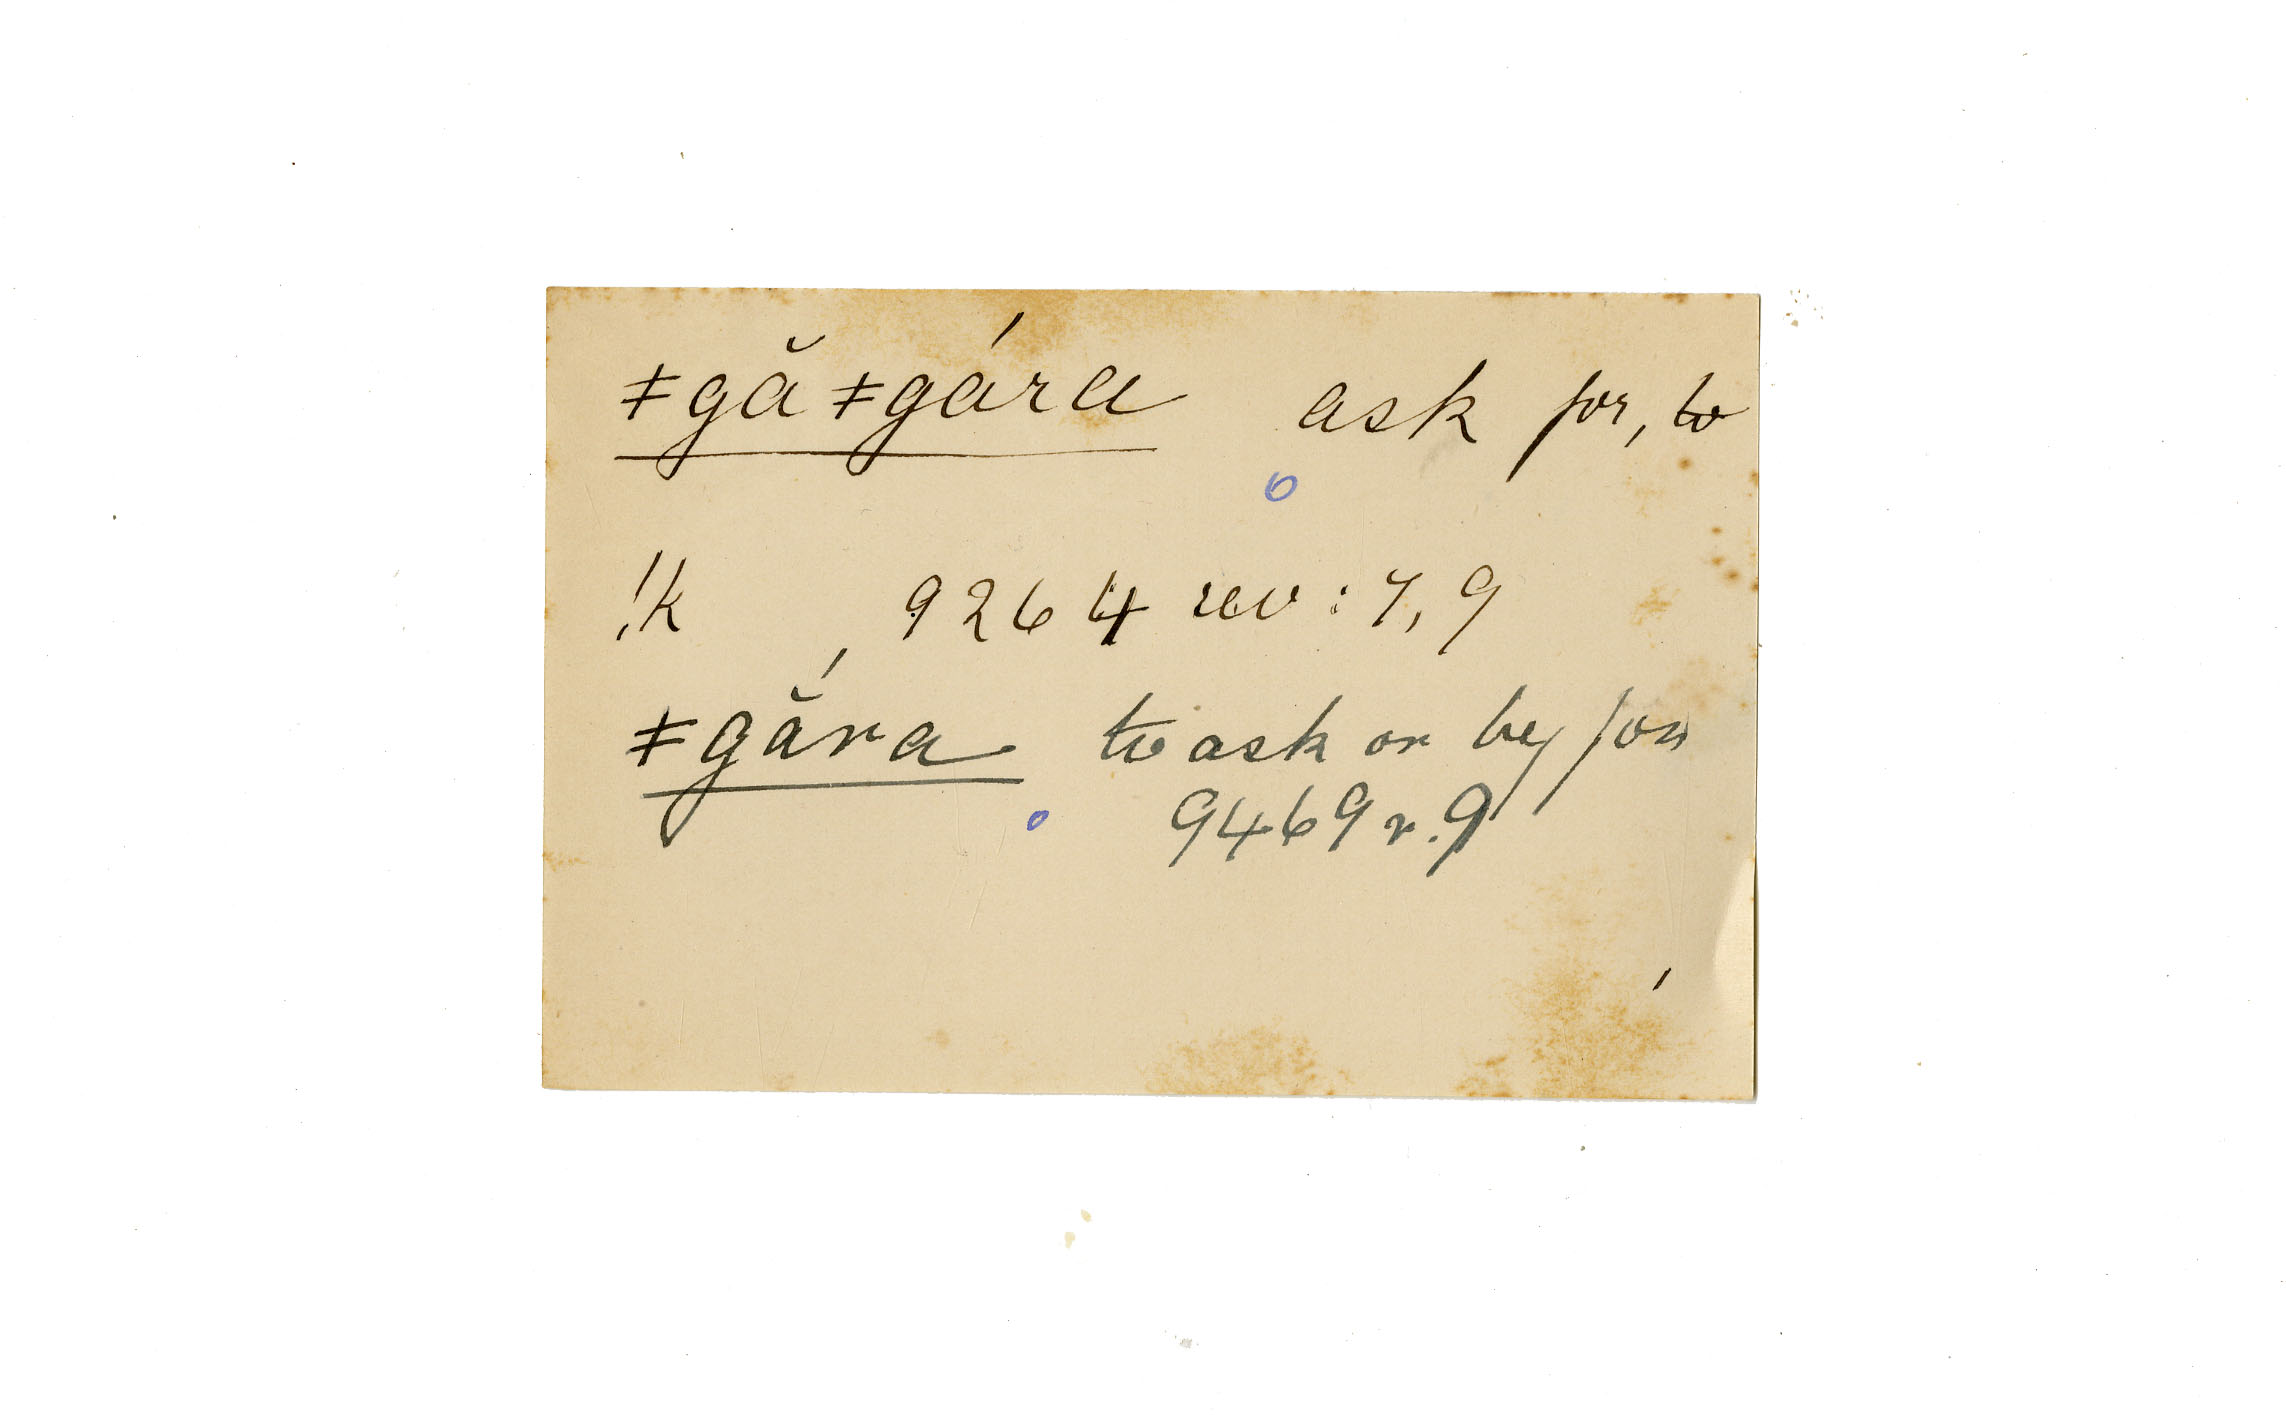 ǂgă ǂgára ask for, to
!k 9264 rev: 7, 9
ǂgắra to ask or beg for
9469 r. 9